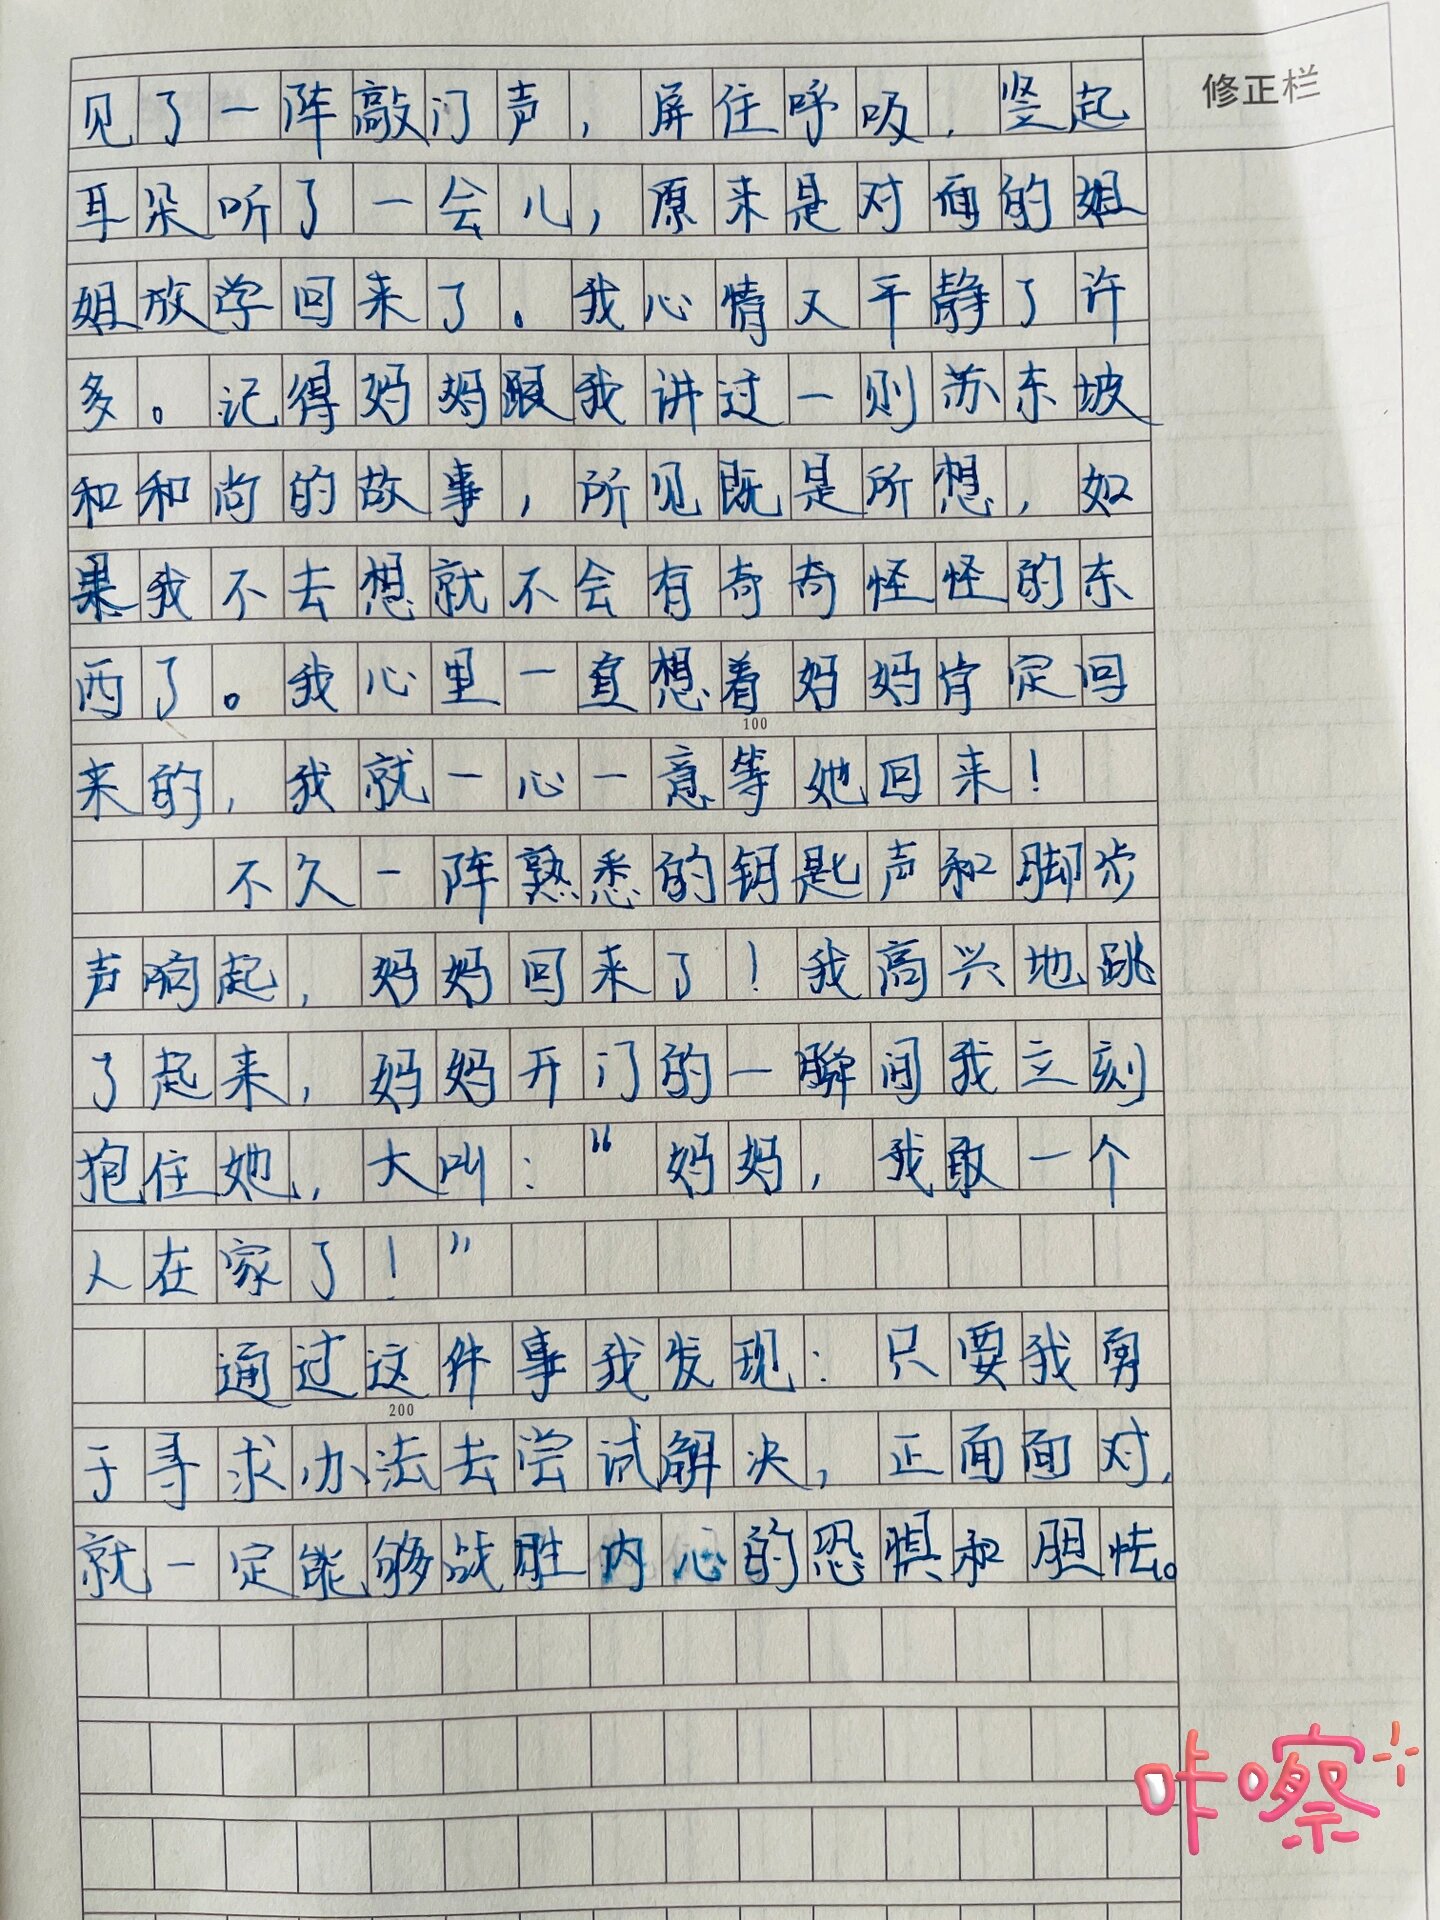 修正栏
见了一阵敲门声，屏住呼吸，竖起
耳朵听了一会儿，原来是对面的姐
姐放学回来了。我心情又平静了许
多。记得妈妈跟我讲过一则苏东坡
和和尚的故事，所见既是所想，如
果我不去想就不会有奇奇怪怪的东
西了。我心里一直想着妈妈肯定回
100
来的，我就一心一意等她回来！
不久一阵熟悉的钥匙声和脚步
声响起，妈妈回来了！我高兴地跳
了起来，妈妈开门的一瞬间我立刻
抱住她，大叫：“妈妈，我敢一个
人在家了！”
通过这件事我发现：只要我勇
200
于寻求办法去尝试解决，正面面对，
就一定能够战胜内心的恐惧和胆怯。
咔嚓